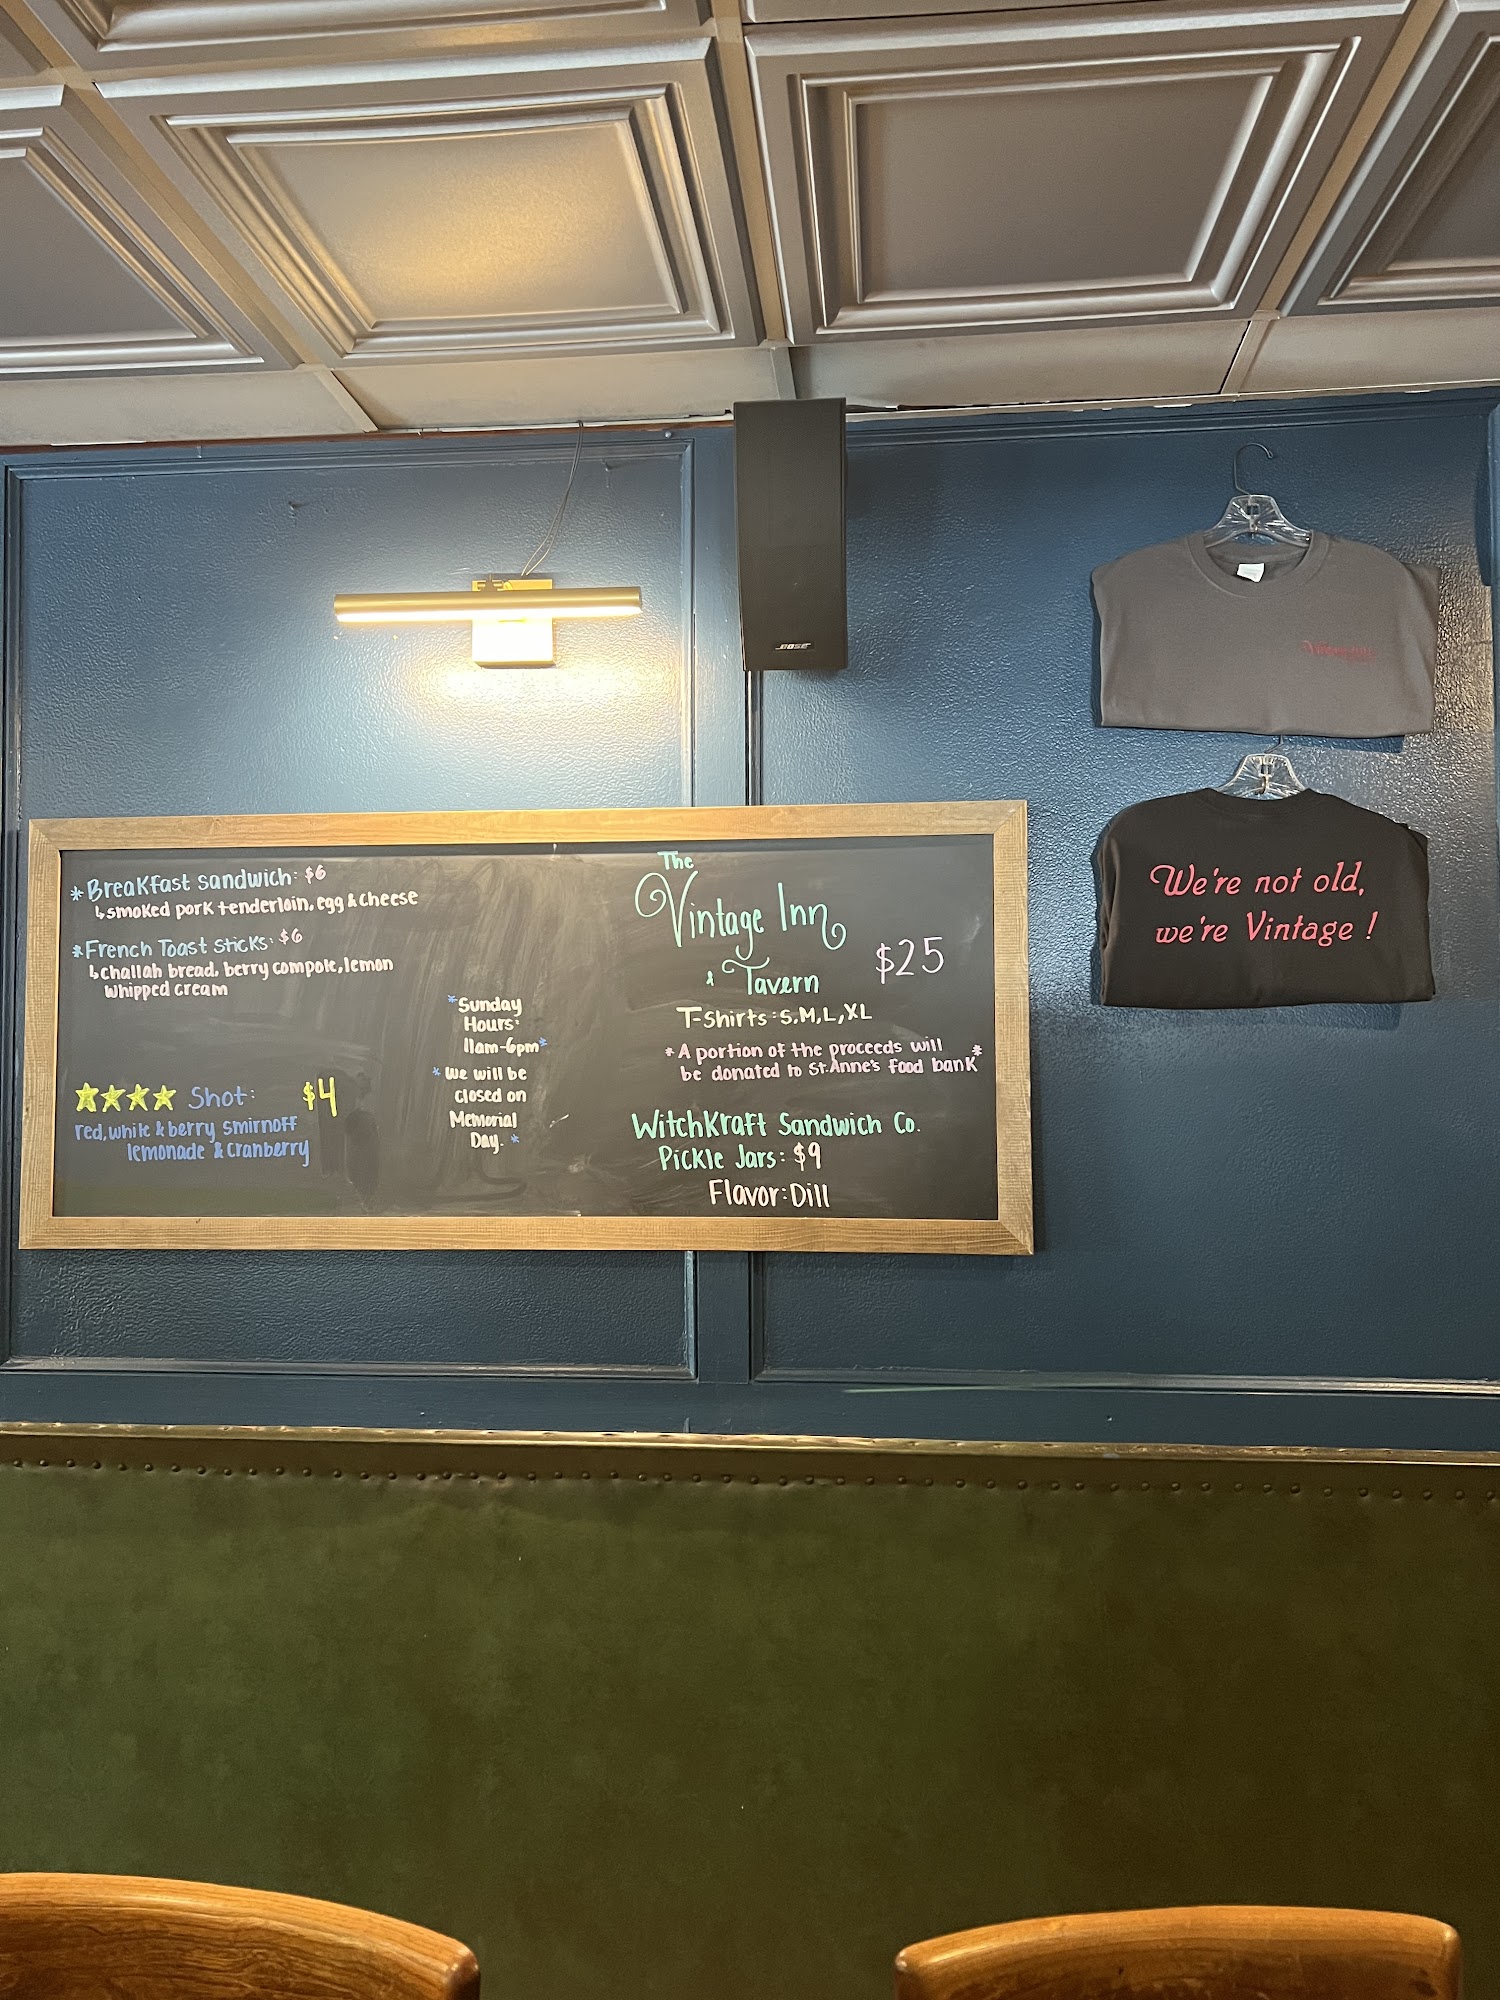 BOSE
*Breakfast sandwich: $6
↳smoked pork tenderloin, egg & cheese
*French Toast sticks: $6
↳challah bread, berry compote, lemon
whipped cream
Shot: $4
red, white & berry smirnoff
lemonade & cranberry
*Sunday
Hours:
11am-6pm*
*We will be
closed on
Memorial
Day.*
The
Vintage Inn
& Tavern
$25
T-Shirts: S, M, L, XL
*A portion of the proceeds will
be donated to St. Anne's food bank*
WitchKraft Sandwich Co.
Pickle Jars: $9
Flavor: Dill
We're not old,
we're Vintage!